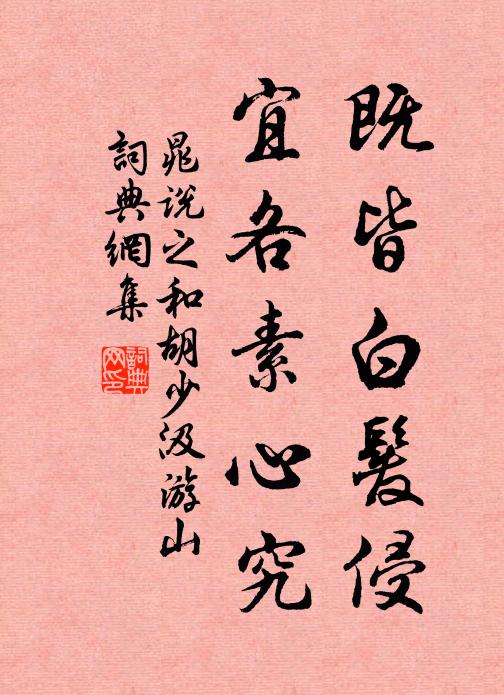 既皆白髮侵
宜各素心究
晁說之和胡少汲游山
詞典網集
詞典網印